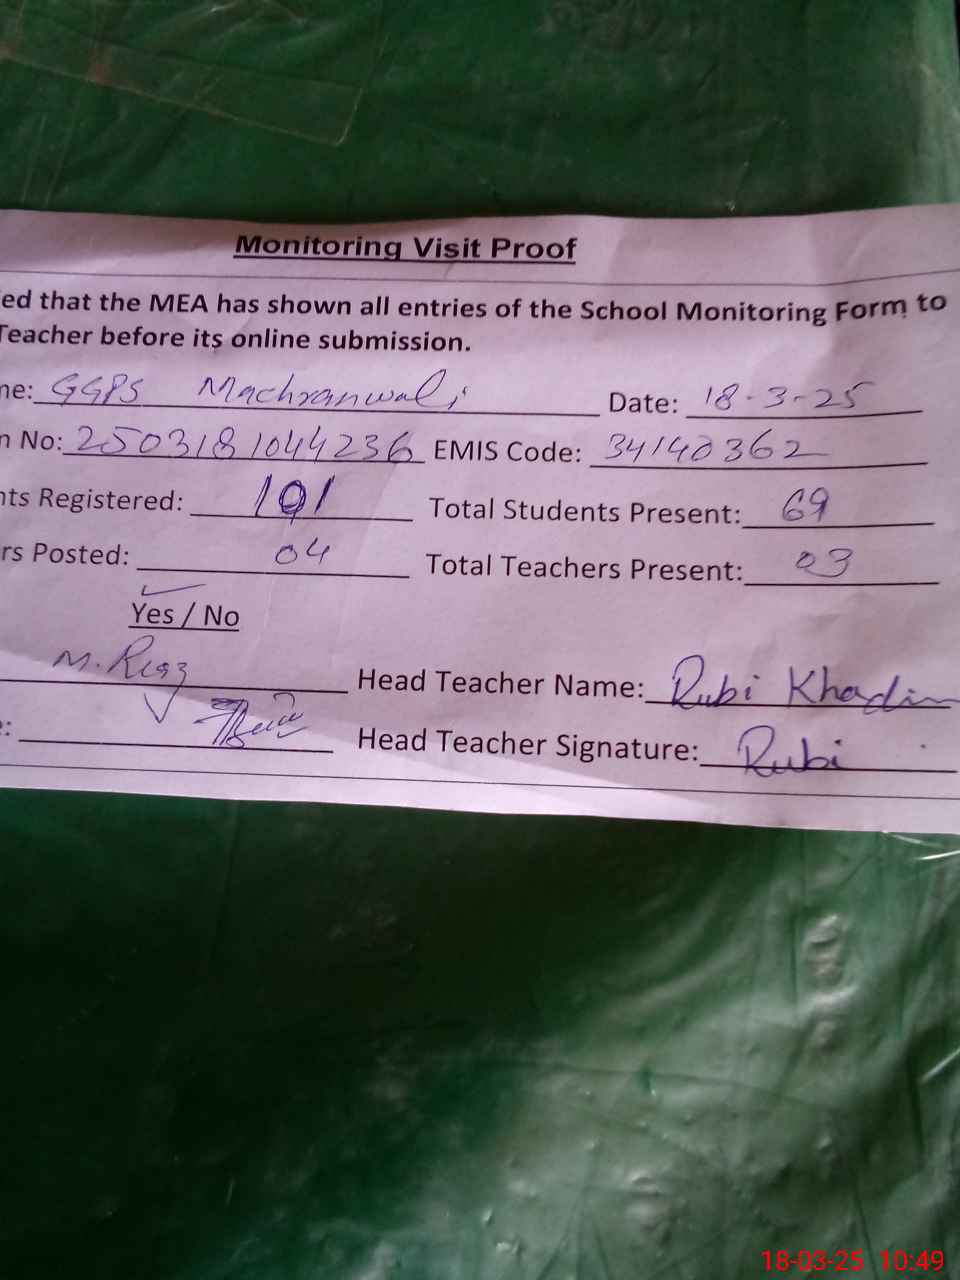 Monitoring Visit Proof
ed that the MEA has shown all entries of the School Monitoring Form to
Teacher before its online submission.
ne: GGPS Machranwali Date: 18-3-25
n No: 2503181044236 EMIS Code: 34140362
nts Registered: 101 Total Students Present: 69
rs Posted: 04 Total Teachers Present: 03
Yes / No
M. Riaz Head Teacher Name: Rubi Khadim
: Head Teacher Signature: Rubi
18-03-25 10:49